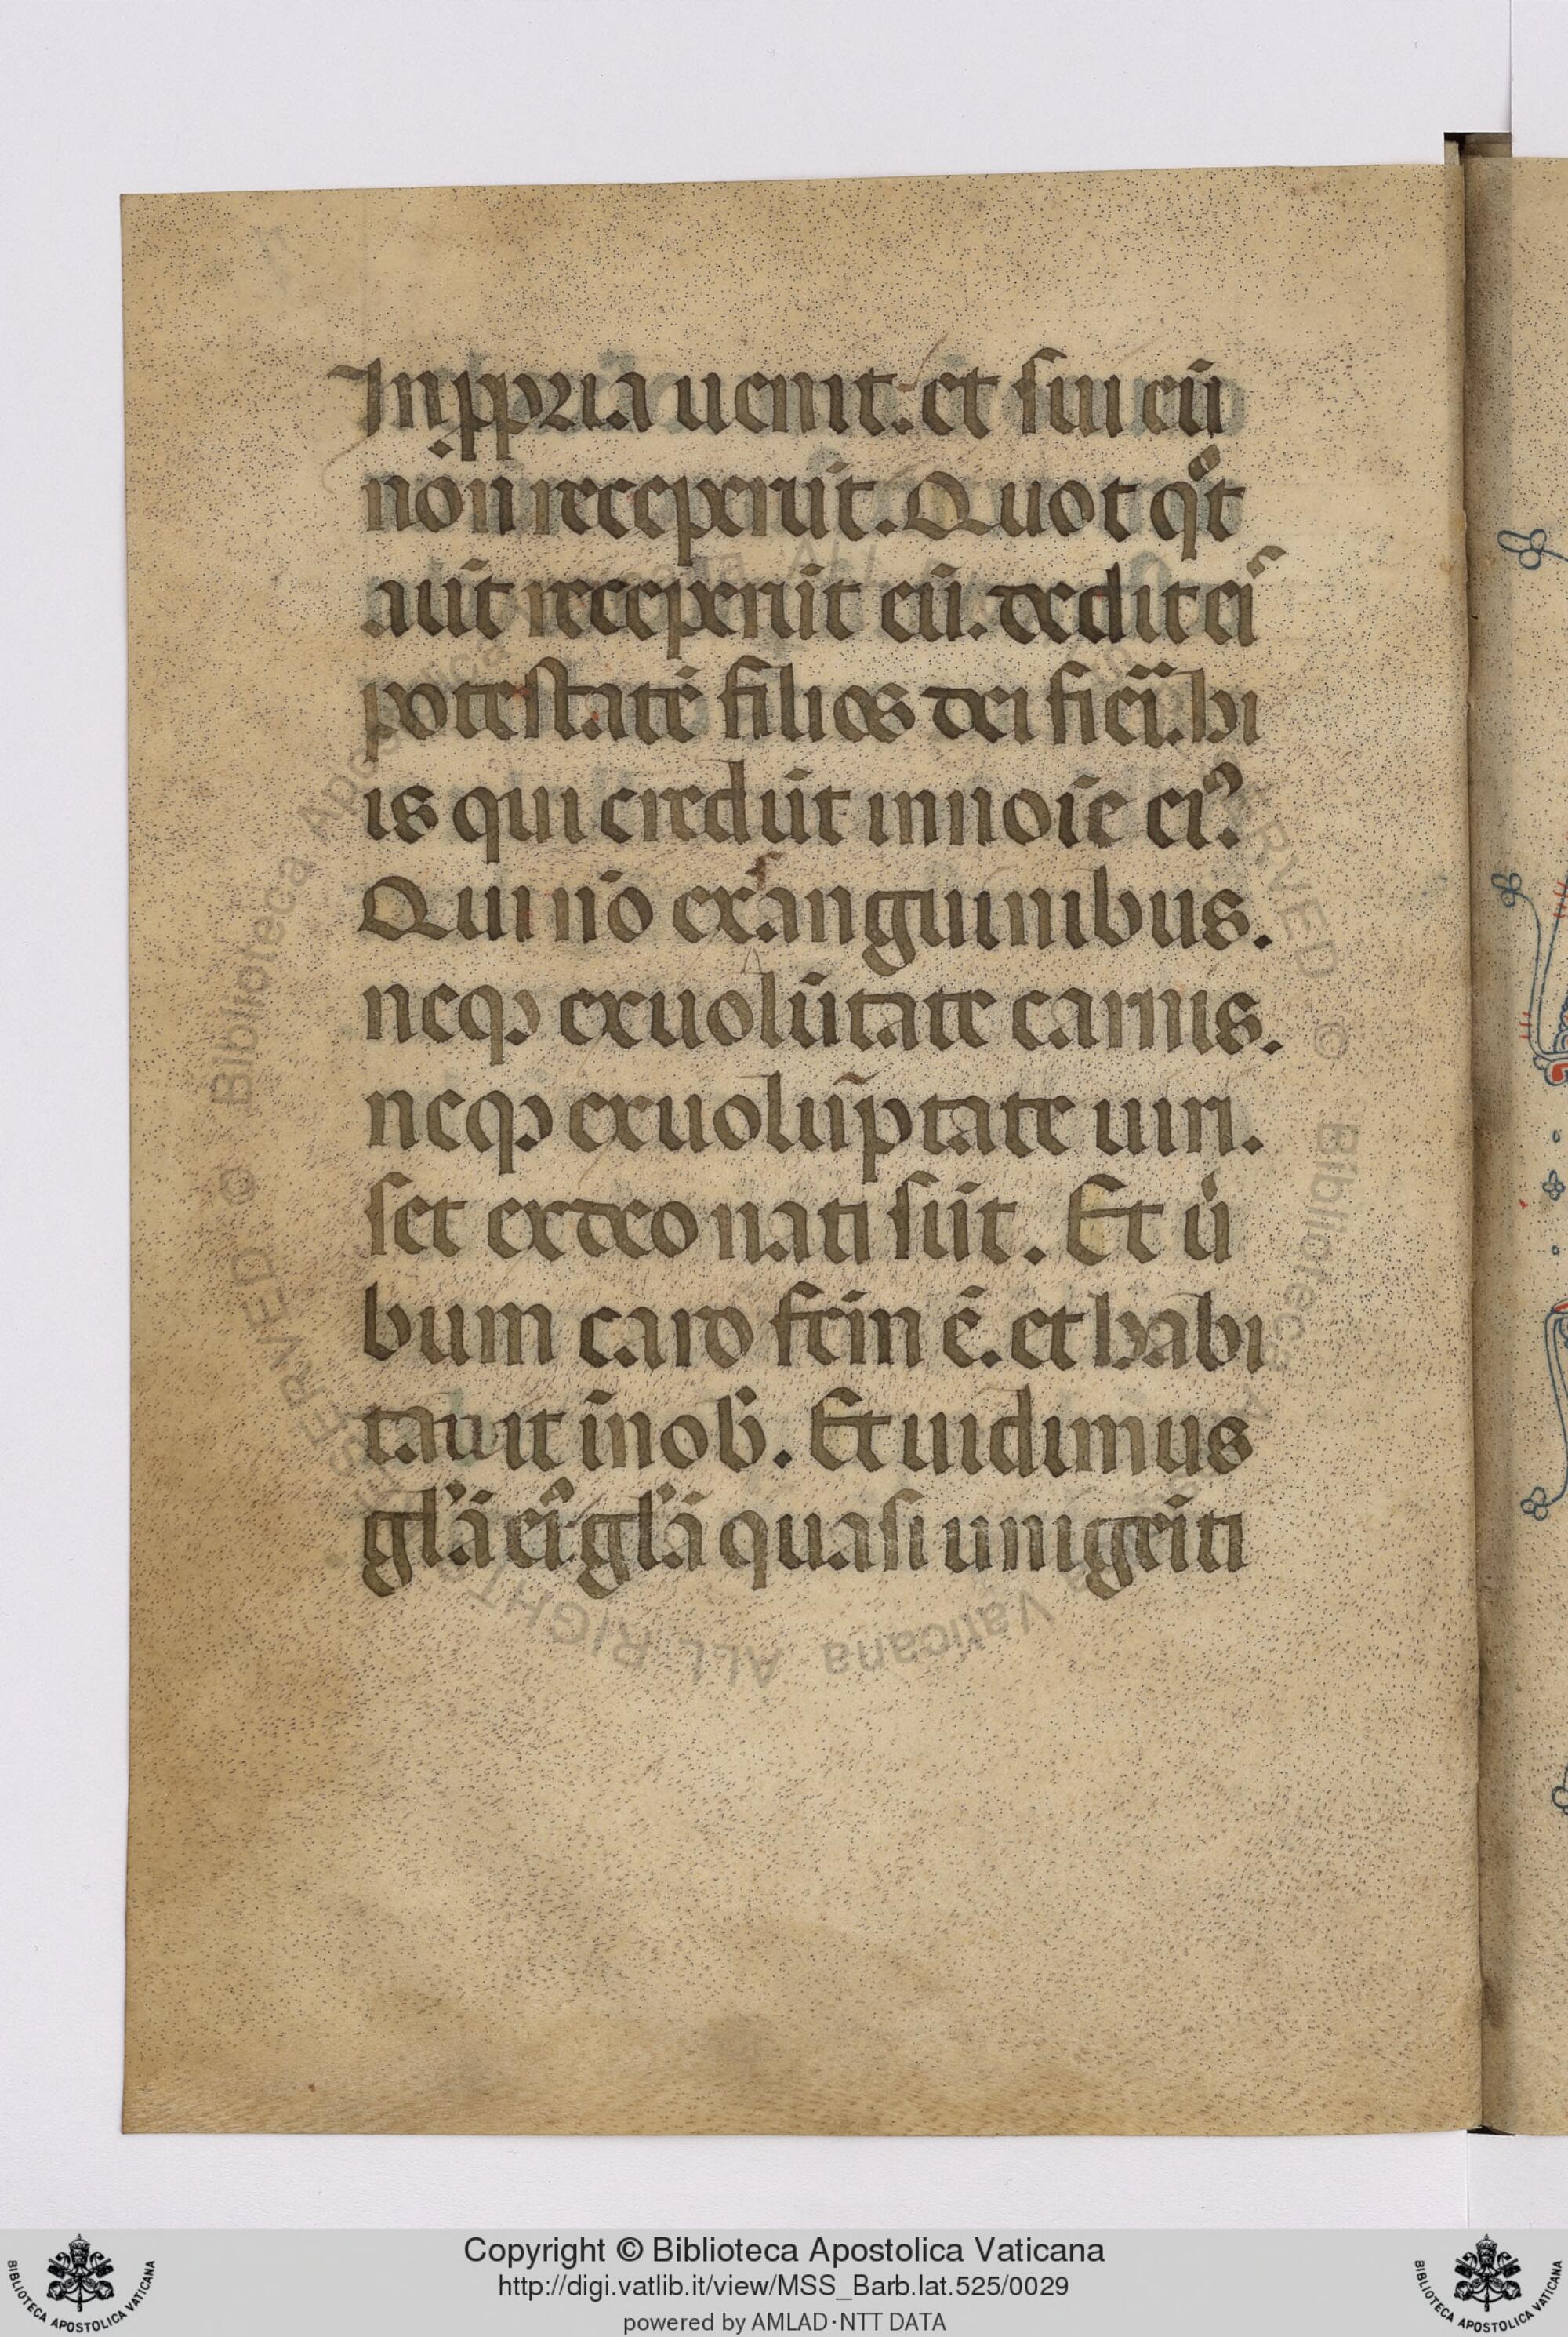 In ꝓpria uenit. et sui eū
non receperūt. Quot q°t
aūt receperūt eū. dedit eiˢ
potestatē filios dei fieri. hi
is qui credūt in noīe eiꝰ.
Qui nō ex sanguinibus.
neqꝫ ex uolūtate carnis.
neqꝫ ex uolūptate uiri.
set ex deo nati sūt. Et u̾
bum caro fcm ē. et habi
tauit in nob̄. Et uidimus
gl̄iā eiꝰ gl̄iā quasi unigēiti
Copyright © Biblioteca Apostolica Vaticana
http://digi.vatlib.it/view/MSS_Barb.lat.525/0029
powered by AMLAD·NTT DATA
BIBLIOTECA APOSTOLICA VATICANA
BIBLIOTECA APOSTOLICA VATICANA